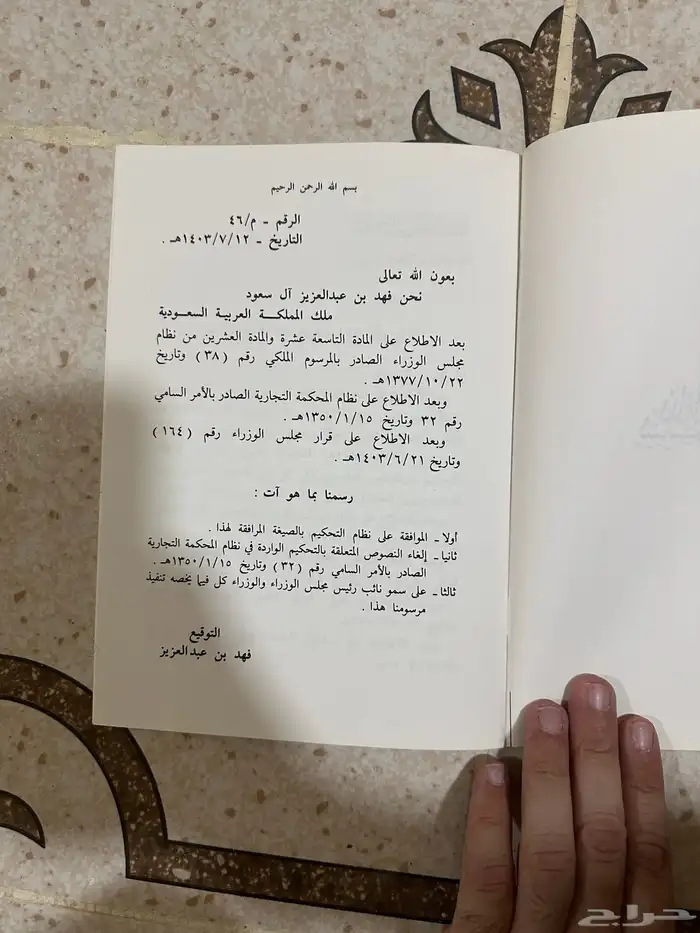 بسم الله الرحمن الرحيم
الرقم - م/٤٦
التاريخ - ١٤٠٣/٧/١٢هـ .
بعون الله تعالى
نحن فهد بن عبدالعزيز آل سعود
ملك المملكة العربية السعودية
بعد الاطلاع على المادة التاسعة عشرة والمادة العشرين من نظام
مجلس الوزراء الصادر بالمرسوم الملكي رقم ( ٣٨ ) وتاريخ
١٣٧٧/١٠/٢٢هـ .
وبعد الاطلاع على نظام المحكمة التجارية الصادر بالأمر السامي
رقم ٣٢ وتاريخ ١٣٥٠/١/١٥هـ .
وبعد الاطلاع على قرار مجلس الوزراء رقم ( ١٦٤ )
وتاريخ ١٤٠٣/٦/٢١هـ .
رسمنا بما هو آت :
أولا - الموافقة على نظام التحكيم بالصيغة المرافقة لهذا .
ثانيا - إلغاء النصوص المتعلقة بالتحكيم الواردة في نظام المحكمة التجارية
الصادر بالأمر السامي رقم ( ٣٢ ) وتاريخ ١٣٥٠/١/١٥هـ .
ثالثا - على سمو نائب رئيس مجلس الوزراء والوزراء كل فيما يخصه تنفيذ
مرسومنا هذا .
التوقيع
فهد بن عبدالعزيز
حراج